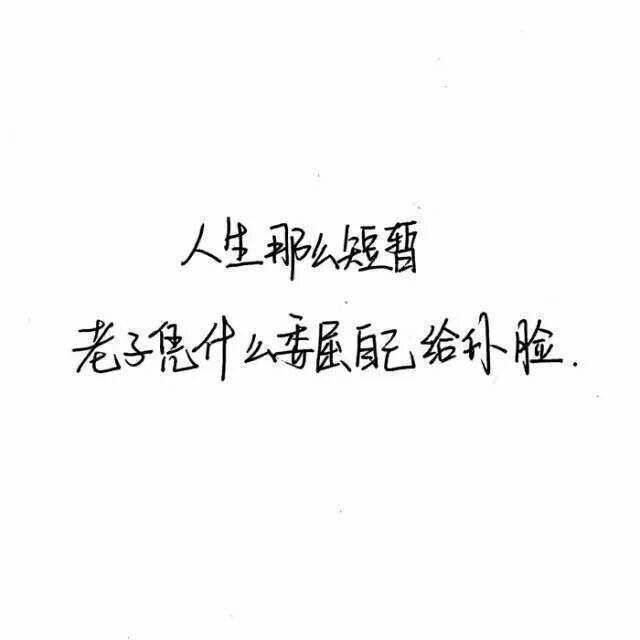 人生那么短暂
老子凭什么委屈自己给你脸.